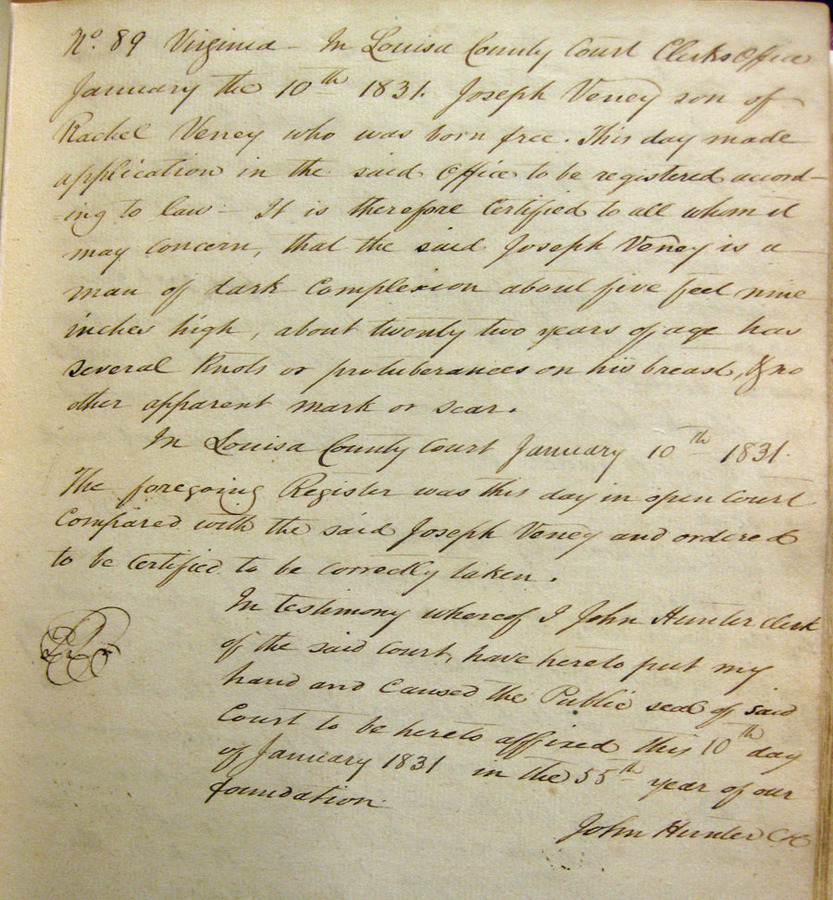 No. 89 Virginia - In Louisa County Court Clerks Office
January the 10th 1831. Joseph Veney son of
Rachel Veney who was born free. This day made
application in the said Office to be registered accord-
-ing to law - It is therefore Certified to all whom it
may Concern, that the said Joseph Veney is a
man of dark Complexion about five feet nine
inches high, about twenty two years of age has
several Knots or protuberances on his breast, & no
other apparent mark or scar.
In Louisa County Court January 10th 1831.
The foregoing Register was this day in open Court
Compared with the said Joseph Veney and ordered
to be Certified to be correctly taken.
In testimony whereof I John Hunter Clerk
of the said Court, have hereto put my
hand and Caused the Public seal of said
Court to be hereto affixed this 10th day
of January 1831 in the 55th year of our
foundation.
John Hunter